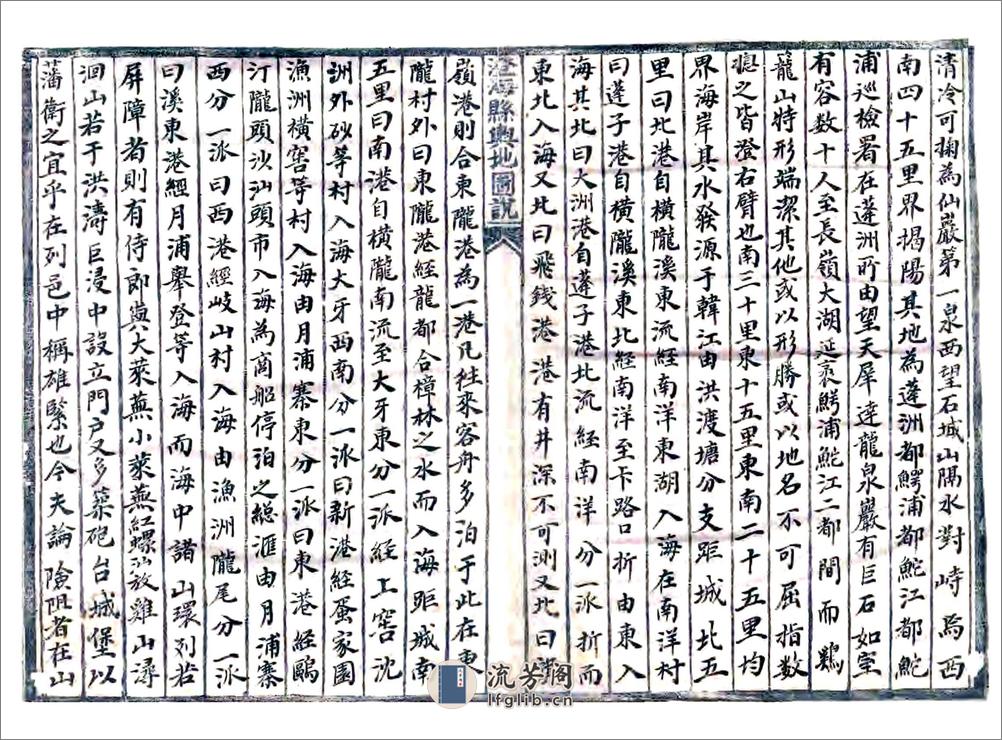 清冷可掬為仙巖第一泉西望石城山隔水對峙焉西
南四十五里界揭陽其地為蓬洲都鱷浦都鮀江都鮀
浦巡檢署在蓬洲所由望天犀達龍泉巖有巨石如室
有容数十人至長嶺大湖延袤鱷浦鮀江二都間而鷄
籠山特形端潔其他或以形勝或以地名不可屈指数
總之皆澄右臂也南三十里東十五里東南二十五里均
界海岸其水發源于韓江由洪渡塘分支距城北五
里曰北港自橫隴溪東流經南洋東湖入海在南洋村
曰蓬子港自橫隴溪東北經南洋至卡路口折由東入
海其北曰大洲港自蓬子港北流經南洋分一派折而
東北入海又北曰飛錢港港有井深不可測又北曰
澄海縣輿地圖說
嶺港則合東隴港為一港凡往來客舟多泊于此在東
隴村外曰東隴港經龍都合樟林之水而入海距城南
五里曰南港自橫隴南流至大牙東分一派經上窖沈
洲外砂等村入海大牙西南分一派曰新港經蛋家園
漁洲橫窖等村入海由月浦寨東分一派曰東港經鷗
汀隴頭沙汕頭市入海為商船停泊之總滙由月浦寨
西分一派曰西港經岐山村入海由漁洲隴尾分一派
曰溪東港經月浦舉登等入海而海中諸山環列若
屏障者則有侍郎與大萊蕪小萊蕪紅螺汕放雞山潯
洄山若于洪濤巨浸中設立門户又多築砲台城堡以
藩衛之宜乎在列邑中稱雄緊也今夫論險阻者在山
流芳閣
lfglib.cn